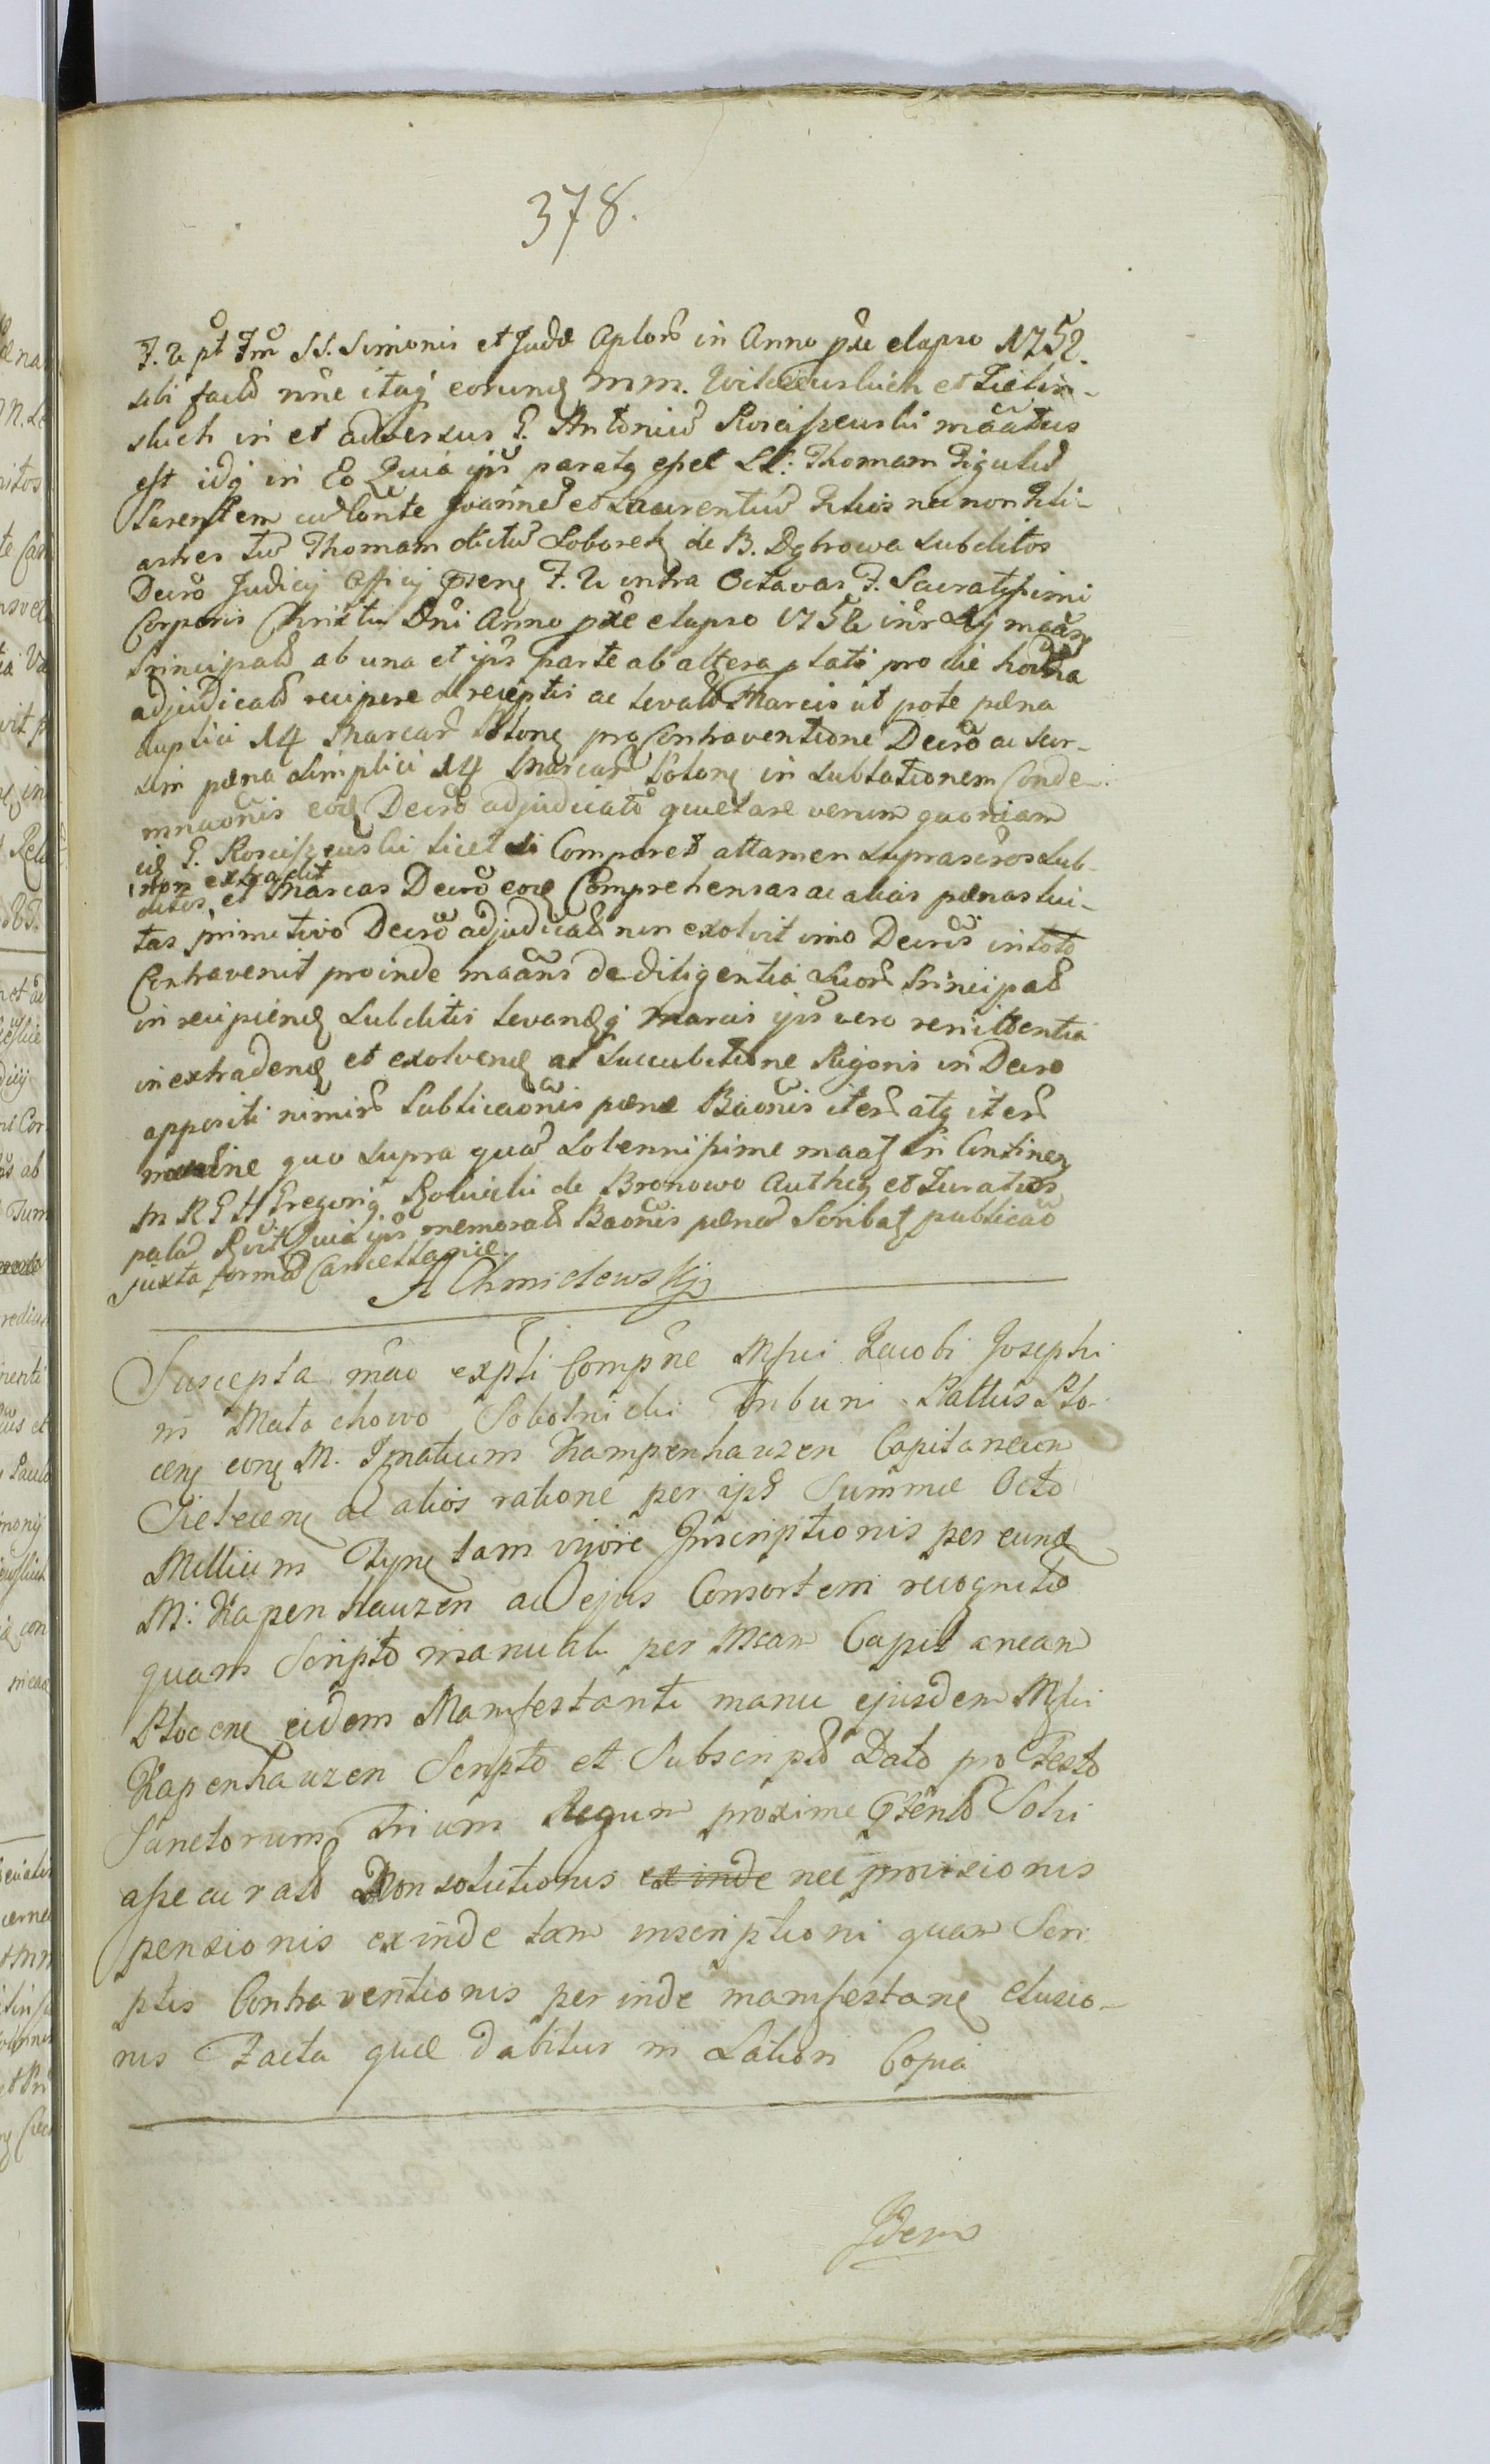 378.
F. 2 pt Fm SS. Simonis et Judæ Aplor in Anno pxe elapso 1752.
sibi facta nne itaq eorund MM. Wilczewskich et Zielin-
skich in et adversus G. Antoniu Rosciszewski maatus
est idq in Eo Quia ips paratq esset LL: Thomam Figulu
Parentem cu Conte Joanne et Laurentiu Filios nec non Fili-
astres tu Thomam dictu Soborek de B. Dąbrowa Subditos
Decro Judicy Officy F. 2 intra Octavas F. Sacratissimi
Corporis Christi Dni Anno pxe elapso 1752 inr maan
Principales ab una et ips parte ab altera lato pro die hodna
adjudicats recipere de receptis ac levats Marcis ut pote pæna
duplici 14 Marcar Polon pro Contraventione Decro ac Rur-
sim pæna simplici 14 Marcar Polon in sublationem Conde-
mnaonis eod Decro adjudicato quietare verum quoniam
id G. Rosciszewski licet si Comparet attamen suprascros Sub-
non extradit
ditos, et Marcas Decro eod Comprehensas ac alias pænas lui-
tas primitivo Decro adjudicats non exolvit imo Decris in toto
Contravenit proinde maans de diligentia Suor Principal
in recipiend Subditis levandq Marcis ips vero renitentia
in extradend et exolvend ac Succubitione Rigoris in Decro
appositi nimir Publicaonis pænæ Baonis iter atq iter
noe quo supra qua Solennissime maat In Continen
M R G H Gregoriq Rolwicki de Bronowo Autheq et Juratus
pala Rvit Quia ips memorats Baonis pæna Scribat publicavo
juxta forma Cancellariæ.
A Chmielewskj
Suscepta mao expti Compne Msci Jacobi Josephi
in Małachowo Sobolnicki Tribuni Pallus Plo-
cen con M. Ignatium Kampenhauzen Capitaneum
Sielecen ac alios ratione per ips Summæ Octo
Millium Tynf tam vigore Inscriptionis per eund
M: Kapenhauzen ac ejus Consortem recognito
quam Scripto manuali per Mcam Capitaneam
Plocens eidem Manifestanti manu ejusdem Msci
Kapenhauzen Scripto et Subscripto Dato pro Festo
Sanctorum Trium Regum proxime Solvi
assecurats Non solutionis ex inde nec provisionis
pensionis exinde tam inscriptioni quam Scri-
ptis Contraventionis per inde manifestans elusio-
nis Facta quæ dabitur in Latiori Copia
Idem